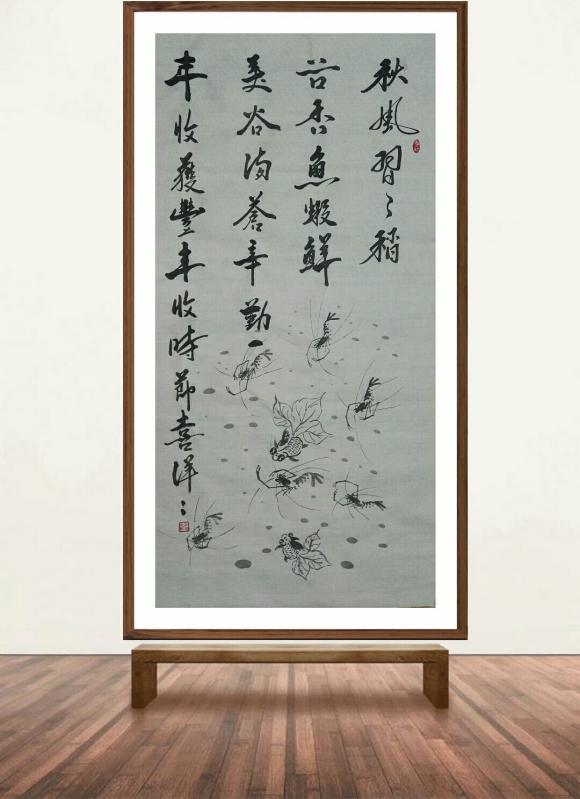 秋風習〻稻
谷香魚蝦鮮
美谷滿蒼辛勤一
年收獲豐年收時節喜洋〻